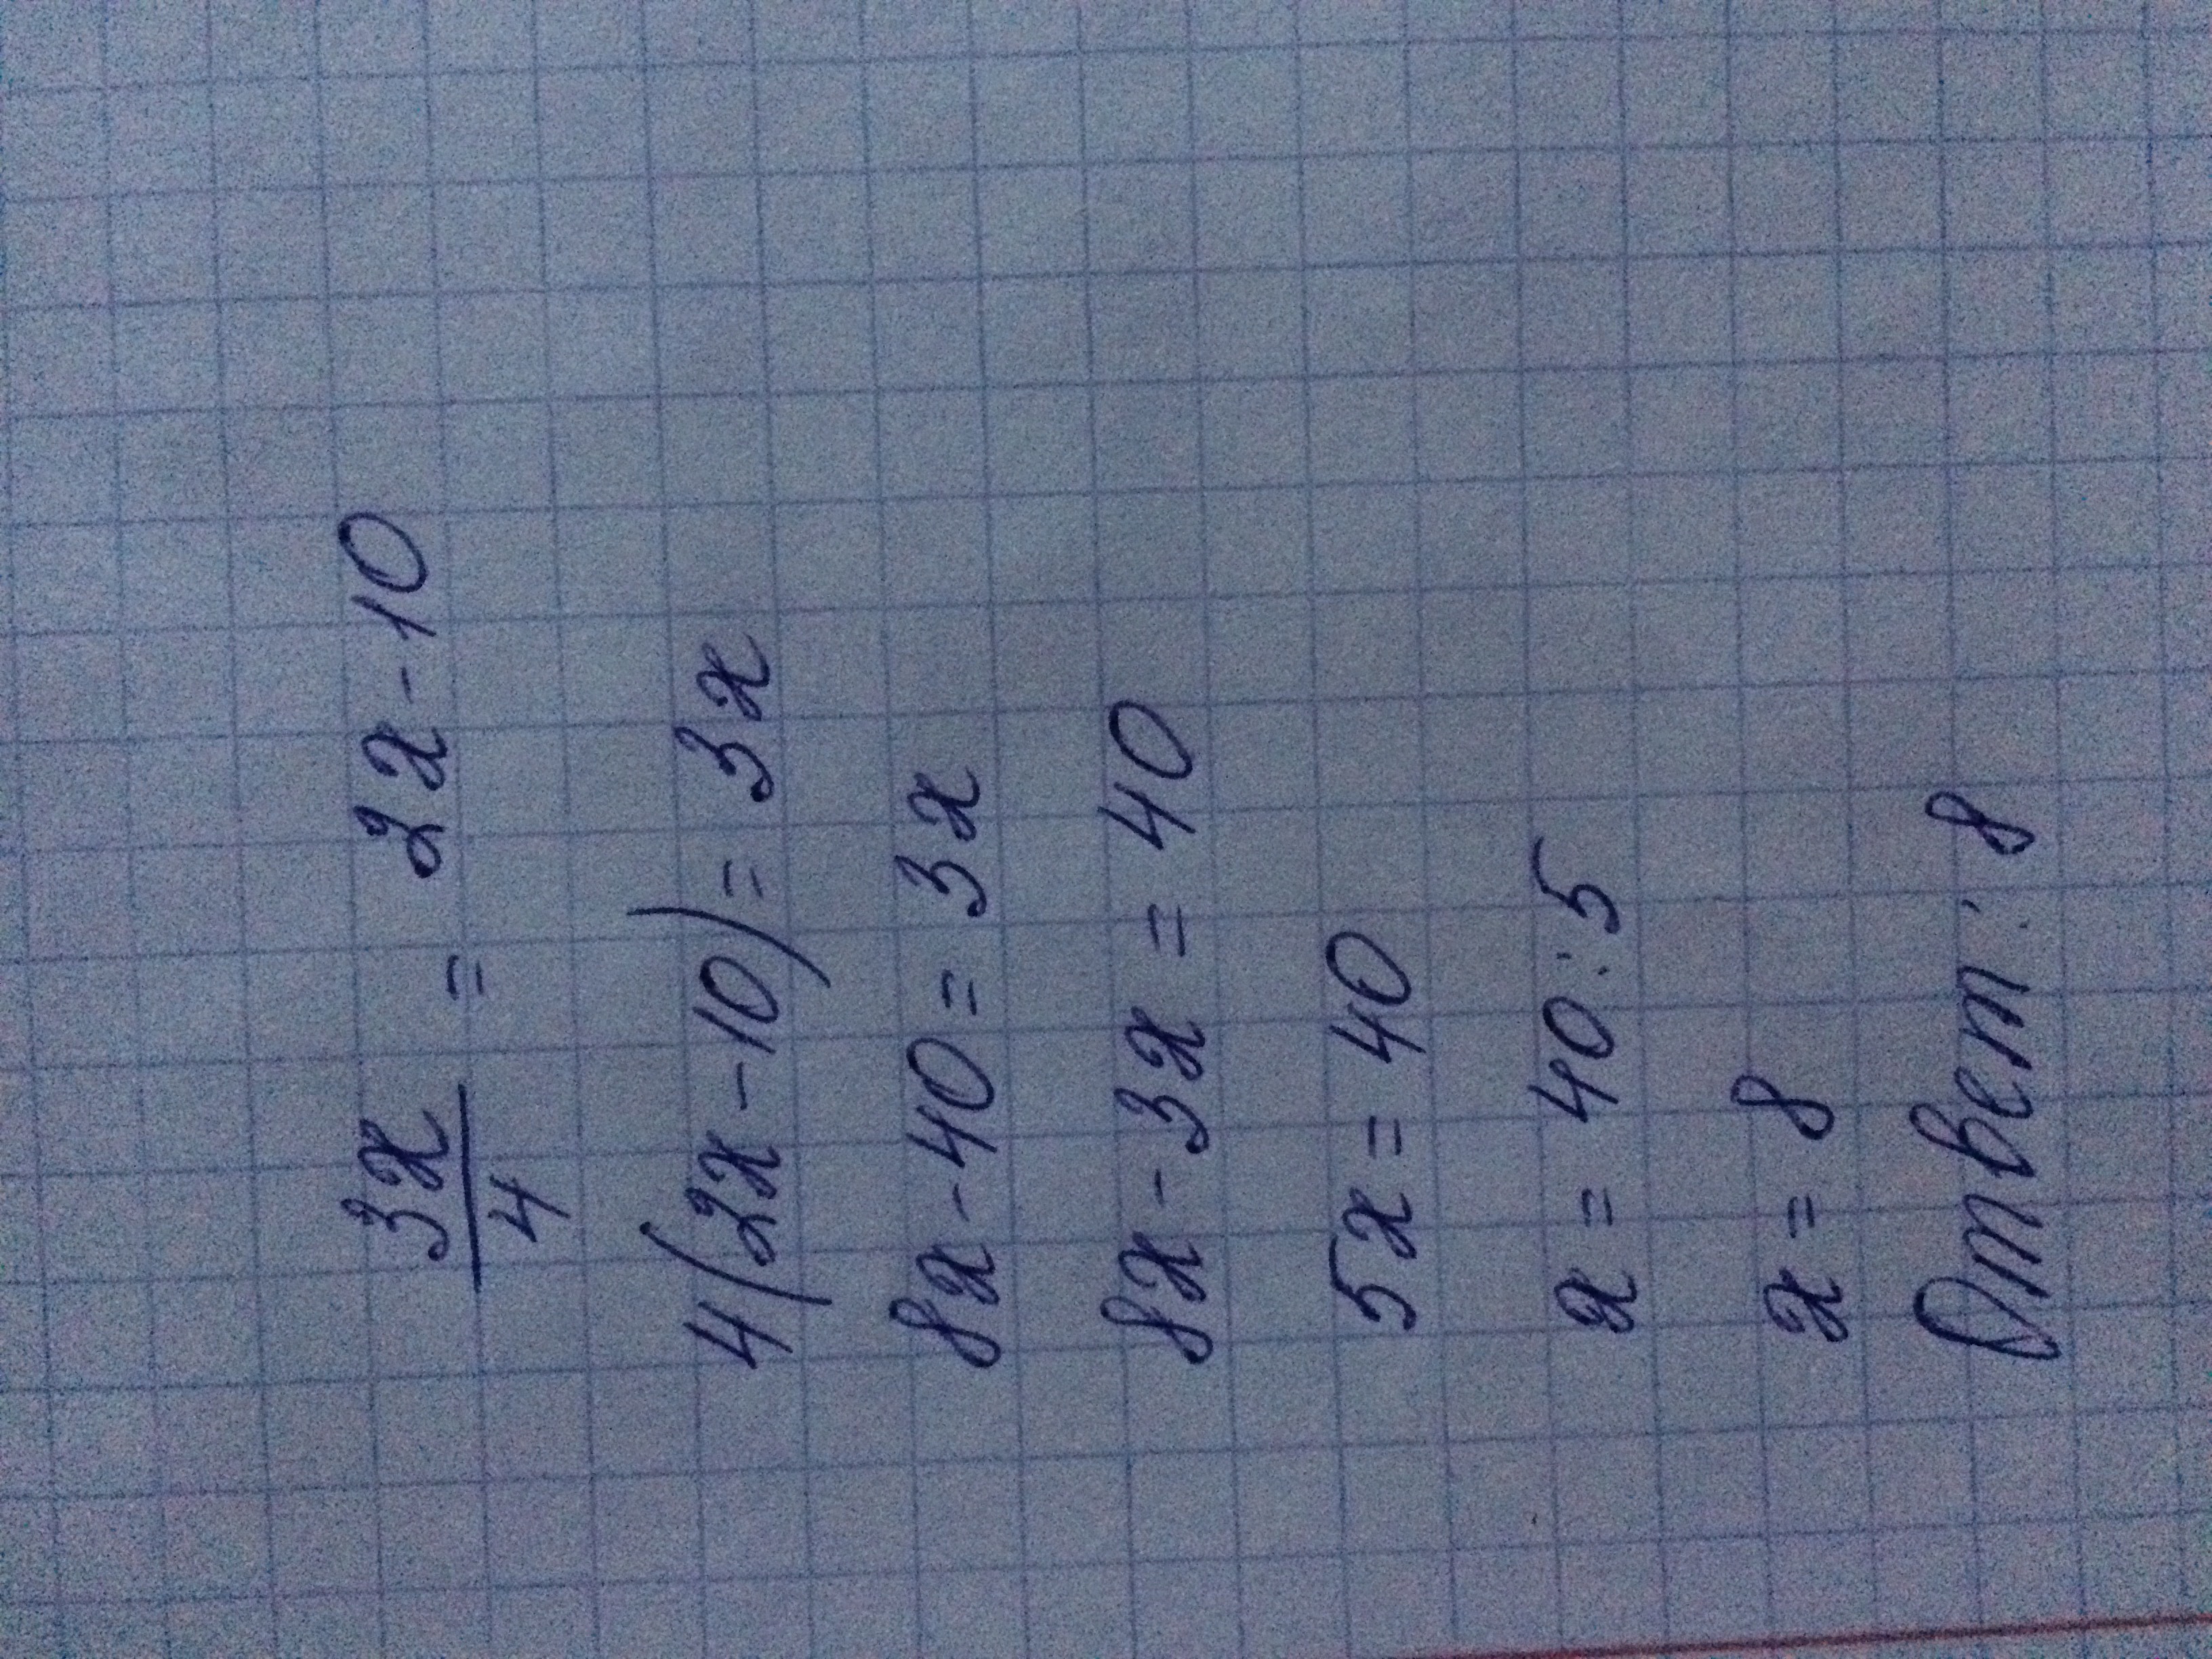 3x/4 = 2x-10
4(2x-10)=3x
8x-40=3x
8x-3x=40
5x=40
x=40:5
x=8
Ответ: 8